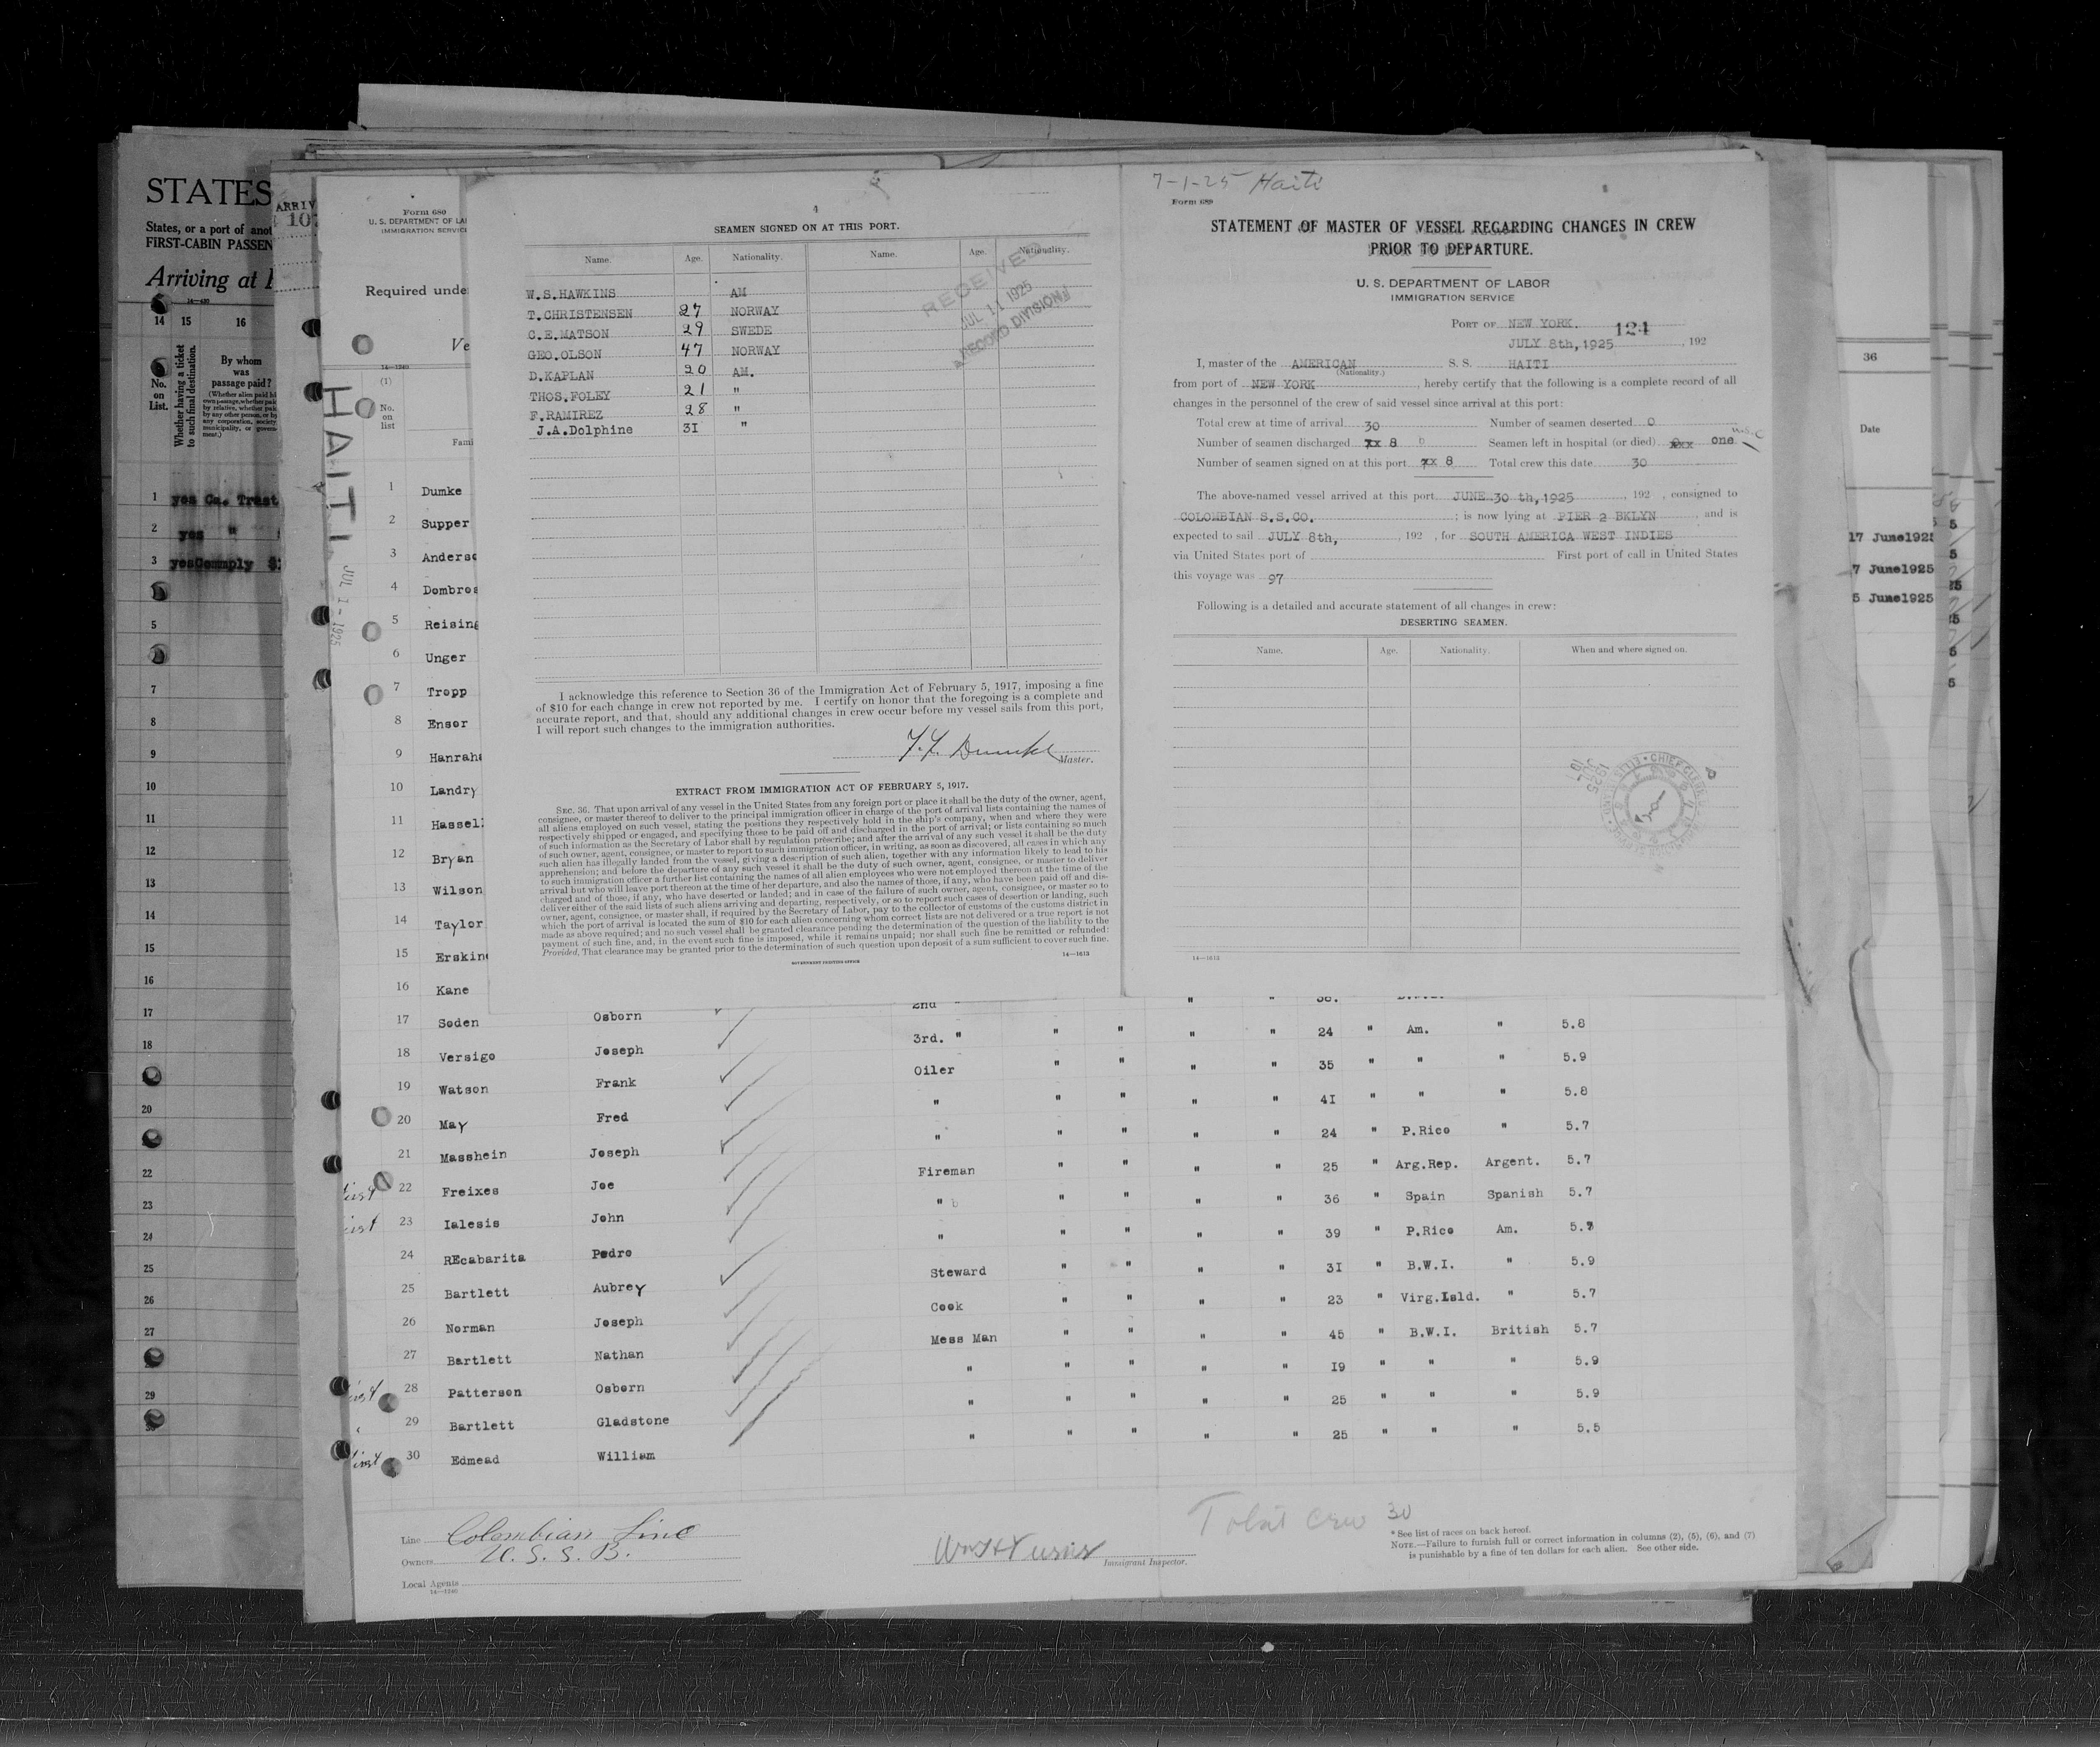 STATES
States, or a port of anot
FIRST-CABIN PASSEN
Arriving at
14—430
14 15 16
No.
on
List.
Whether having a ticket
to such final destination.
By whom
was
passage paid?
1 yes Ca. Trast
2 yes "
3 yes
5
7
8
9
10
11
12
13
14
15
16
17
18
20
22
23
24
25
26
27
29
ARRIV
107
Form 680
U. S. DEPARTMENT OF LA
IMMIGRATION SERVICE
Required unde
Ve
14—1240
(1)
No.
on
list
Fami
HAITI
JUL 1 - 1925
1 Dumke
2 Supper
3 Anders
4 Dombros
5 Reising
6 Unger
7 Tropp
8 Ensor
9 Hanrah
10 Landry
11 Hassel
12 Bryan
13 Wilson
14 Taylor
15 Erskin
16 Kane
4
SEAMEN SIGNED ON AT THIS PORT.
Name. Age. Nationality. Name. Age. Nationality.
W.S.HAWKINS AM
T.CHRISTENSEN 27 NORWAY
C.E.MATSON 29 SWEDE
GEO.OLSON 47 NORWAY
D.KAPLAN 20 AM.
THOS.FOLEY 21 "
F.RAMIREZ 28 "
J.A.Dolphine 31 "
RECEIVED
JUL 11 1925
RECORD DIVISION
I acknowledge this reference to Section 36 of the Immigration Act of February 5, 1917, imposing a fine
of $10 for each change in crew not reported by me. I certify on honor that the foregoing is a complete and
accurate report, and that, should any additional changes in crew occur before my vessel sails from this port,
I will report such changes to the immigration authorities.
Master.
EXTRACT FROM IMMIGRATION ACT OF FEBRUARY 5, 1917.
SEC. 36. That upon arrival of any vessel in the United States from any foreign port or place it shall be the duty of the owner, agent,
consignee, or master thereof to deliver to the principal immigration officer in charge of the port of arrival lists containing the names of
all aliens employed on such vessel, stating the positions they respectively hold in the ship's company, when and where they were
respectively shipped or engaged, and specifying those to be paid off and discharged in the port of arrival; or lists containing so much
of such information as the Secretary of Labor shall by regulation prescribe; and after the arrival of any such vessel it shall be the duty
of such owner, agent, consignee, or master to report to such immigration officer, in writing, as soon as discovered, all cases in which any
such alien has illegally landed from the vessel, giving a description of such alien, together with any information likely to lead to his
apprehension; and before the departure of any such vessel it shall be the duty of such owner, agent, consignee, or master to deliver
to such immigration officer a further list containing the names of all alien employees who were not employed thereon at the time of the
arrival but who will leave port thereon at the time of her departure, and also the names of those, if any, who have been paid off and dis-
charged and of those, if any, who have deserted or landed; and in case of the failure of such owner, agent, consignee, or master so to
deliver either of the said lists of such aliens arriving and departing, respectively, or so to report such cases of desertion or landing, such
owner, agent, consignee, or master shall, if required by the Secretary of Labor, pay to the collector of customs of the customs district in
which the port of arrival is located the sum of $10 for each alien concerning whom correct lists are not delivered or a true report is not
made as above required; and no such vessel shall be granted clearance pending the determination of the question of the liability to the
payment of such fine, and, in the event such fine is imposed, while it remains unpaid; nor shall such fine be remitted or refunded:
Provided, That clearance may be granted prior to the determination of such question upon deposit of a sum sufficient to cover such fine.
GOVERNMENT PRINTING OFFICE 14—1613
7-1-25 Haiti
Form 689
STATEMENT OF MASTER OF VESSEL REGARDING CHANGES IN CREW
PRIOR TO DEPARTURE.
U. S. DEPARTMENT OF LABOR
IMMIGRATION SERVICE
PORT OF NEW YORK. 124
JULY 8th,1925 , 192
I, master of the AMERICAN S. S. HAITI
(Nationality.)
from port of NEW YORK , hereby certify that the following is a complete record of all
changes in the personnel of the crew of said vessel since arrival at this port:
Total crew at time of arrival 30 Number of seamen deserted 0
Number of seamen discharged xx 8 b Seamen left in hospital (or died) xxx one U.S.C
Number of seamen signed on at this port xx 8 Total crew this date 30
The above-named vessel arrived at this port JUNE 30 th,1925 , 192 , consigned to
COLOMBIAN S.S.CO. ; is now lying at PIER 2 BKLYN , and is
expected to sail JULY 8th, , 192 , for SOUTH AMERICA WEST INDIES
via United States port of First port of call in United States
this voyage was 97
Following is a detailed and accurate statement of all changes in crew:
DESERTING SEAMEN.
Name. Age. Nationality. When and where signed on.
CHIEF CLERK
1925
14—1613
36
Date
17 June192
7 June1925
5 June1925
5
5
5
5
5
2nd "
17 Soden Osborn 3rd. " " " " " 24 " Am. " 5.8
18 Versigo Joseph Oiler " " " " 35 " " " 5.9
19 Watson Frank " " " " " 41 " " " 5.8
20 May Fred " " " " " 24 " P.Rico " 5.7
21 Masshein Joseph Fireman " " " " 25 " Arg.Rep. Argent. 5.7
22 Freixes Joe " b " " " " 36 " Spain Spanish 5.7
23 Ialesis John " " " " " 39 " P.Rico Am. 5.7
24 REcabarita Pedro Steward " " " " 31 " B.W.I. " 5.9
25 Bartlett Aubrey Cook " " " " 23 " Virg.Isld. " 5.7
26 Norman Joseph Mess Man " " " " 45 " B.W.I. British 5.7
27 Bartlett Nathan " " " " " 19 " " " 5.9
28 Patterson Osborn " " " " " 25 " " " 5.9
29 Bartlett Gladstone " " " " " 25 " " " 5.5
30 Edmead William
Line Colombian Line
Owners U. S. S. B.
Local Agents
14—1240
Immigrant Inspector.
Total Crew 30
* See list of races on back hereof.
NOTE.—Failure to furnish full or correct information in columns (2), (5), (6), and (7)
is punishable by a fine of ten dollars for each alien. See other side.